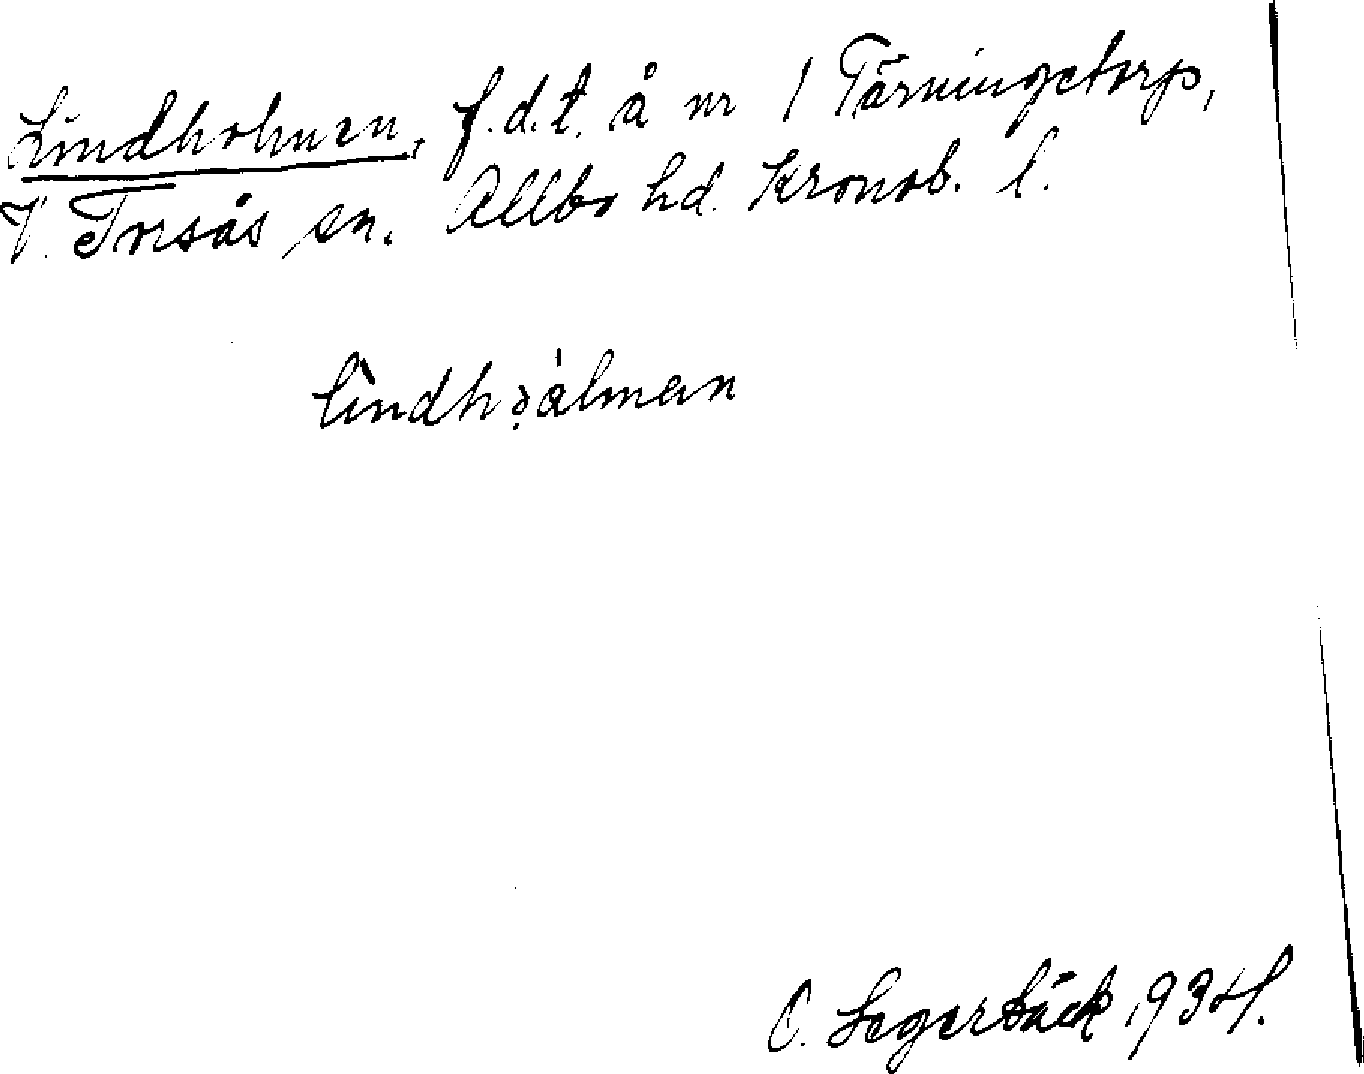 Lindholmen, f.d.t. å nr 1 Tärningetorp,
V. Torsås sn. Allbo hd. Kronob. l.
O. Segerbäck 1934.